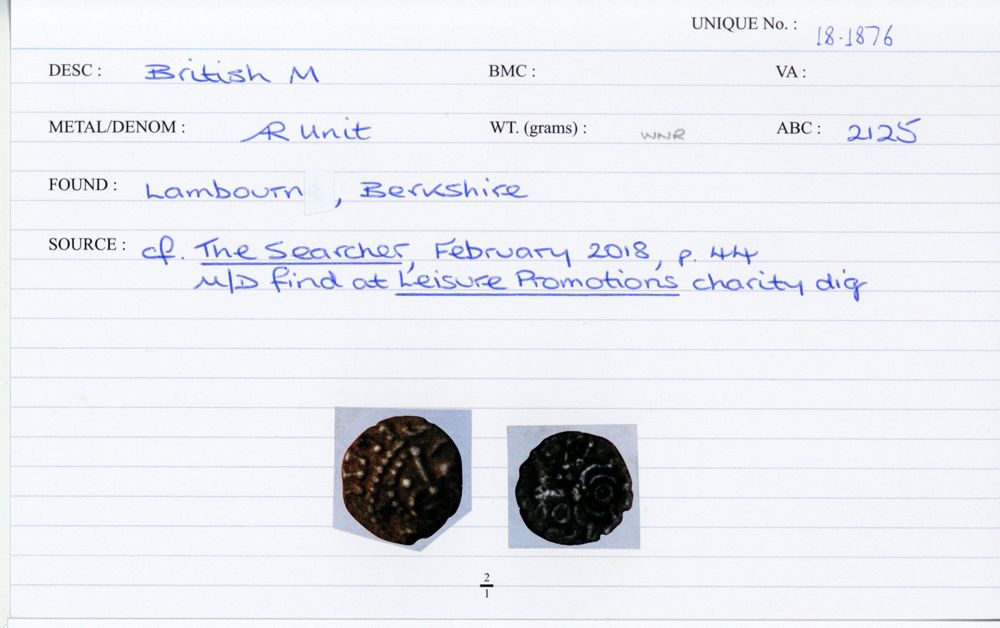 UNIQUE No. : 18-1876
DESC : British M BMC : VA :
METAL/DENOM : AR Unit WT. (grams) : WNR ABC : 2125
FOUND : Lambourn, Berkshire
SOURCE : cf. The Searcher, February 2018, p. 44
M/D find at Leisure Promotions charity dig
2
1